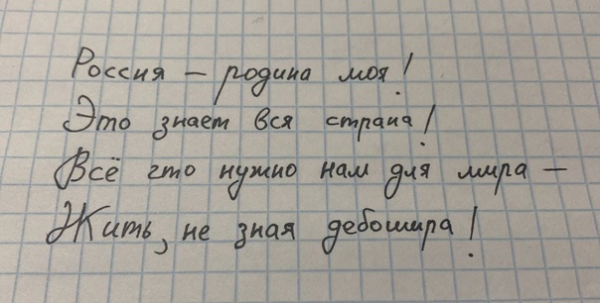 Россия – родина моя!
Это знает вся страна!
Всё что нужно нам для мира –
Жить, не зная дебошира!